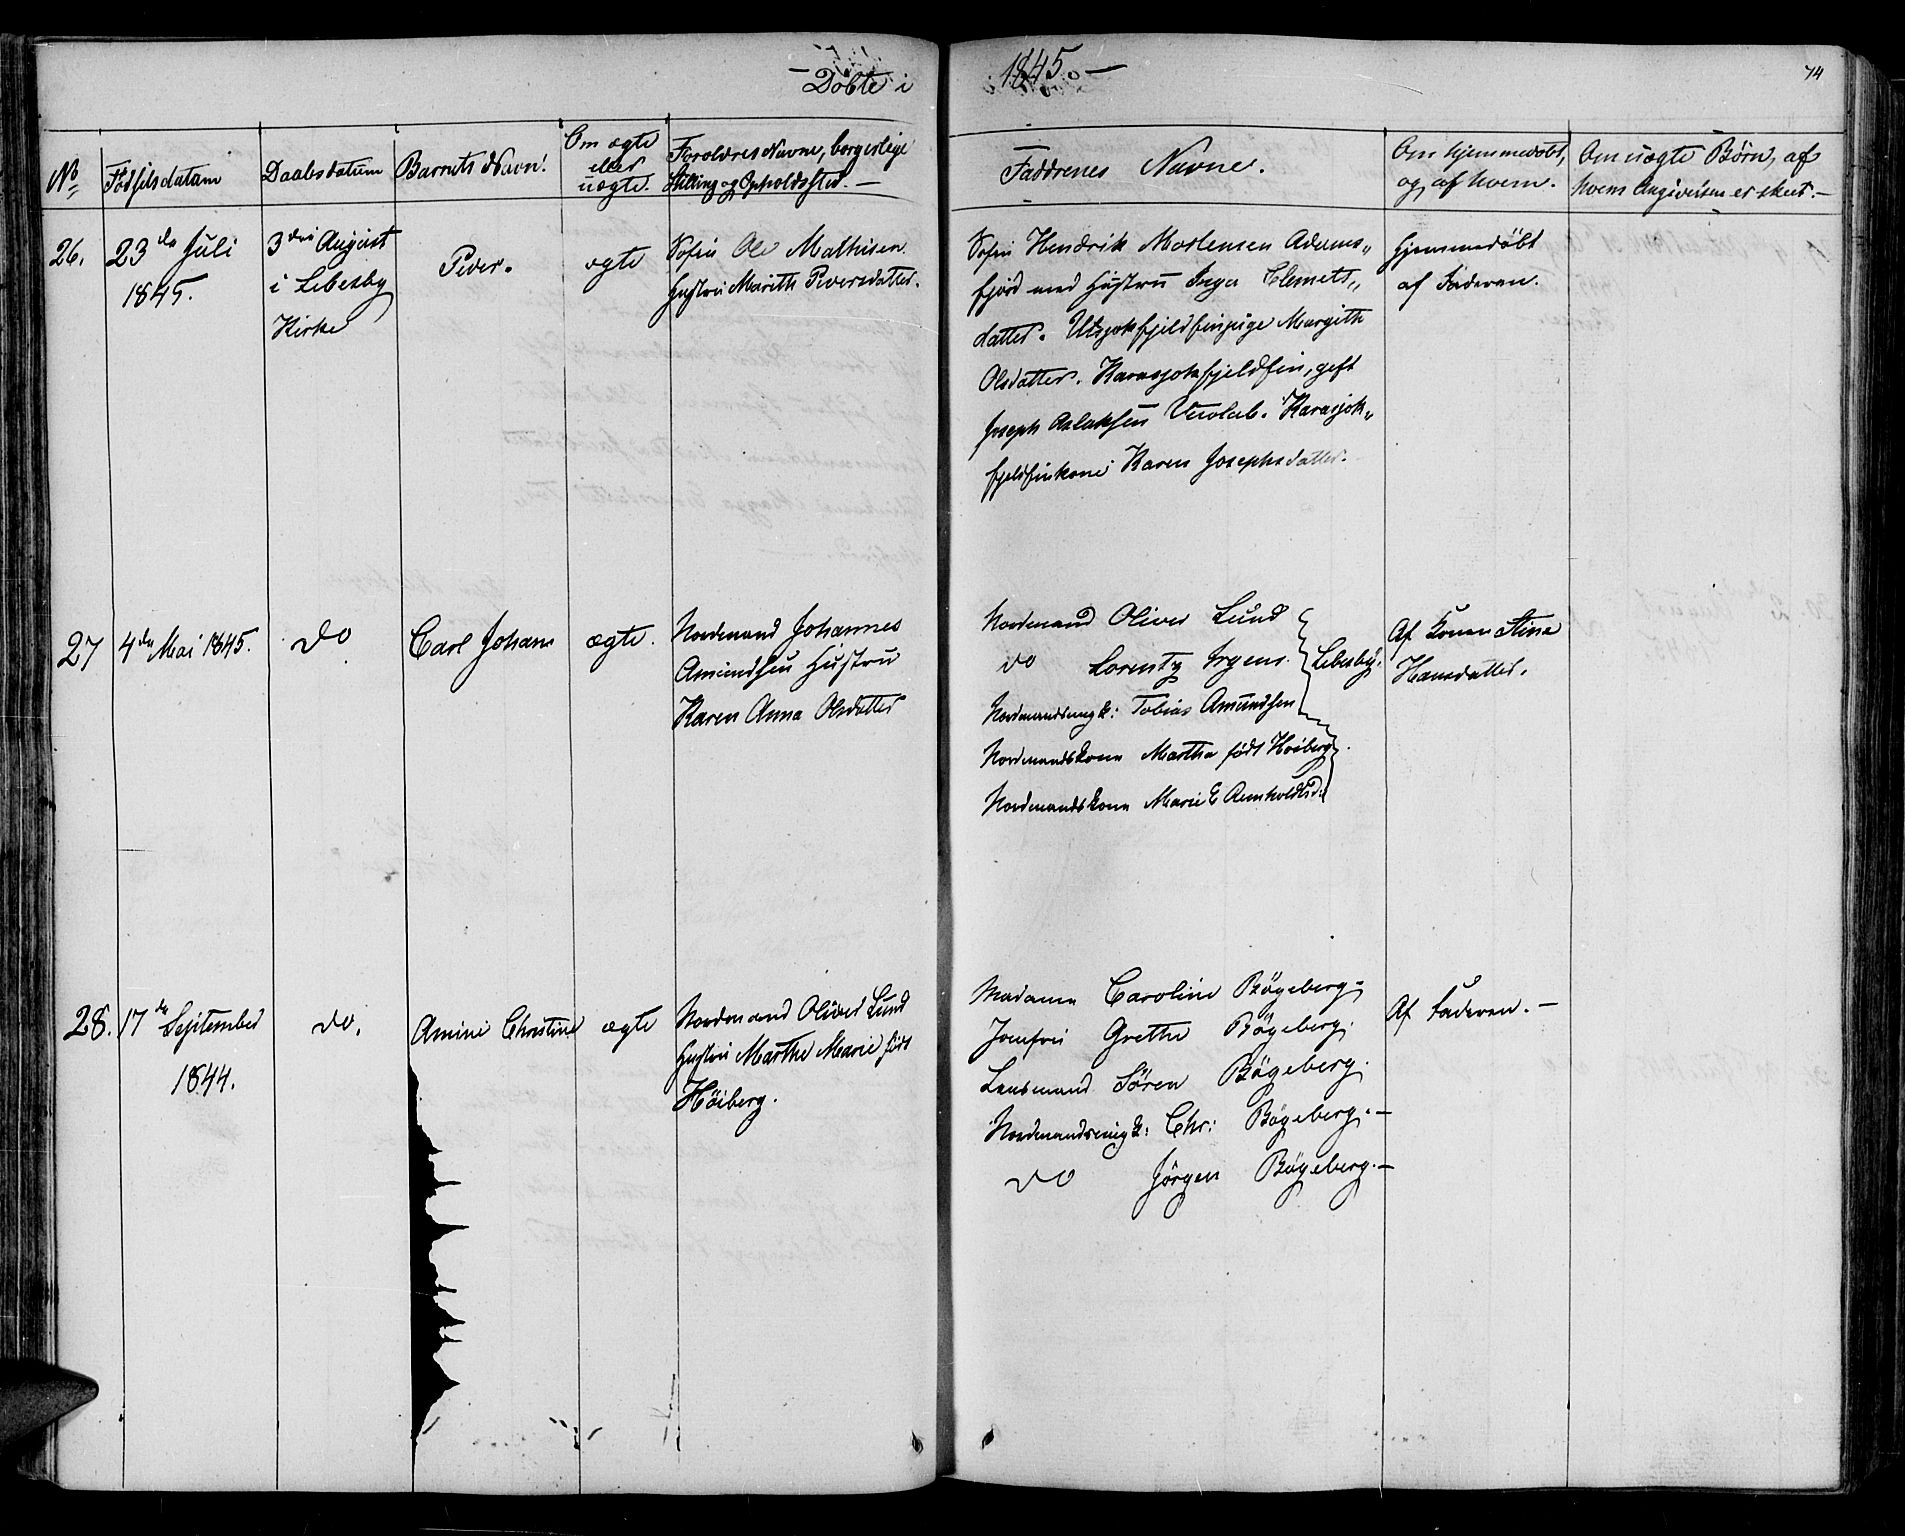 – Döbte i
1845 –
74
No
Födselsdatum
Daabsdatum
Barnets Navn.
Om ægte
eller
uægte.
Forældres Navne, borgerlige
Stilling og Opholdssted. –
Faddrenes Navne.
Om hjemmedöbt,
og af hvem.
Om uægte Börn, af
hvem Angivelsen er skeet. –
26.
23de Juli
1845.
3die August
i Lebesby
Kirke
Peder.
ægte
Söfin Ole Mathisen
Hustru Marith Pedersdatter.
Söfin Hendrik Mortensen Adams„
fjord med Hustru Inga Clemets„
datter. Utsjoksfjeldfinpige Margith
Olsdatter. Karasjoksfjeldfin, gift
Joseph Aslaksen Karasjok„
fjeldfinkone Karen Josephsdatter.
Hjemmedöbt
af Faderen.
27
4de Mai 1845.
do
Carl Johan
ægte.
Nordmand Johannes
Amundsen Hustru
Karen Anna Olsdatter
Nordmand Oliver Lund
do Lorentz Irgens.
Nordmandsungk: Tobias Amundsen
Nordmandskone Martha födt Höiberg
Nordmandskone Marie E
Lebesby.
Af Konen Stina
Hansdatter.
28.
17de September
1844.
do.
Amine Christine
ægte
Nordmand Oliver Lund
Hustru Marthe Marie födt
Höiberg.
Madame Caroline Bögeberg –
Jomfru Grethe Bögeberg.
Lensmand Sören Bögeberg.
Nordmandsungk: Chr: Bögeberg. –
do Jörgen Bögeberg. –
Af Faderen. –